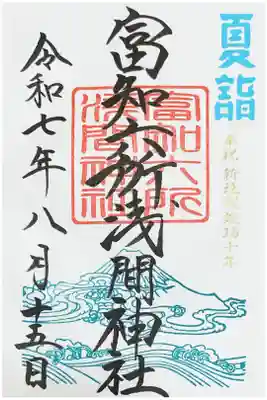 夏詣
奉祝
十年
富知六所浅間神社
富知六所
浅間神社
令和七年八月十五日